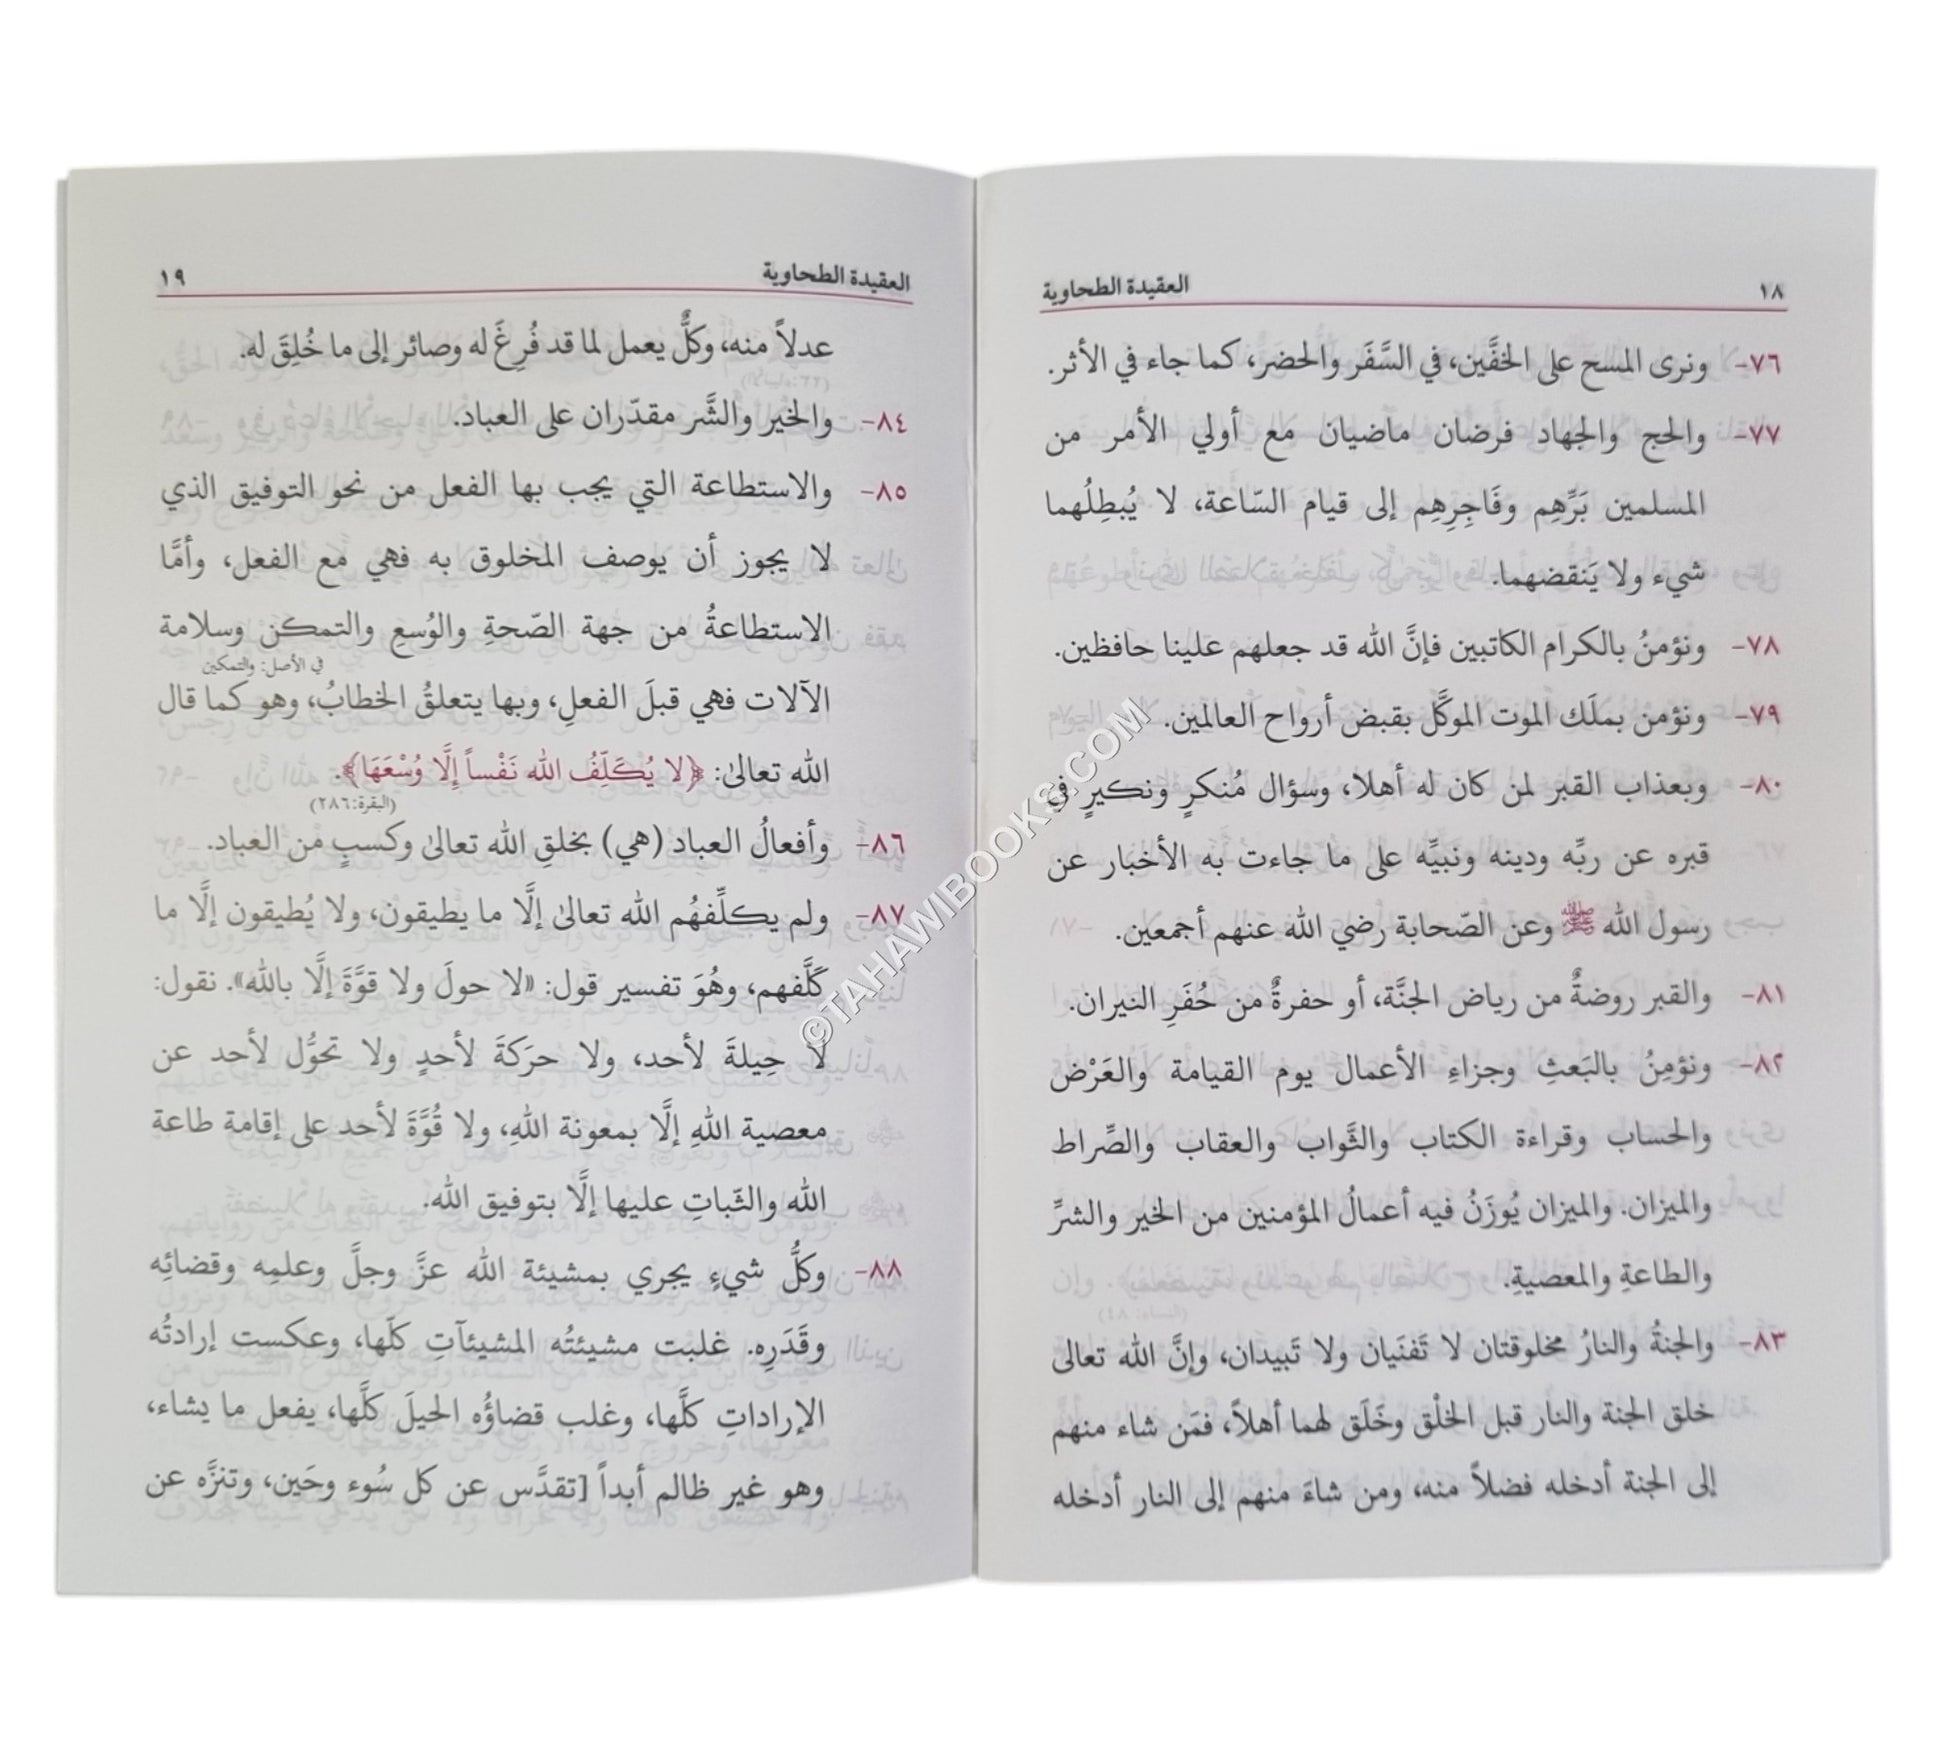 ١٨ العقيدة الطحاوية
٧٦- ونرى المسح على الخفَّين، في السَّفَر والحضر، كما جاء في الأثر.
٧٧- والحج والجهاد فرضان ماضيان مع أولي الأمر من
المسلمين بَرِّهِم وفَاجِرِهِم إلى قيام السّاعة، لا يُبطِلُهما
شيء ولا يَنقضهما.
٧٨- ونؤمنُ بالكرام الكاتبين فإنَّ الله قد جعلهم علينا حافظين.
٧٩- ونؤمن بملَك الموت الموكَّل بقبض أرواح العالمين.
٨٠- وبعذاب القبر لمن كان له أهلا، وسؤال مُنكرٍ ونكيرٍ في
قبره عن ربِّه ودينه ونبيِّه على ما جاءت به الأخبار عن
رسول الله ﷺ وعن الصّحابة رضي الله عنهم أجمعين.
٨١- والقبر روضةٌ من رياض الجنَّة، أو حفرةٌ من حُفَرِ النيران.
٨٢- ونؤمِنُ بالبَعثِ وجزاءِ الأعمال يوم القيامة والعَرْض
والحساب وقراءة الكتاب والثَّواب والعقاب والصِّراط
والميزان. والميزان يُوزَنُ فيه أعمالُ المؤمنين من الخير والشرِّ
والطاعةِ والمعصيةِ.
٨٣- والجنةُ والنارُ مخلوقتان لا تَفنَيان ولا تَبيدان، وإنَّ الله تعالى
خلق الجنة والنار قبل الخلْق وخَلَق لهما أهلاً، فمَن شاء منهم
إلى الجنة أدخله فضلاً منه، ومن شاءَ منهم إلى النار أدخله
العقيدة الطحاوية ١٩
عدلاً منه، وكلٌّ يعمل لما قد فُرِغَ له وصائر إلى ما خُلِقَ له.
٨٤- والخير والشَّر مقدّران على العباد.
٨٥- والاستطاعة التي يجب بها الفعل من نحو التوفيق الذي
لا يجوز أن يوصف المخلوق به فهي مع الفعل، وأمَّا
الاستطاعةُ من جهة الصّحةِ والوُسعِ والتمكن وسلامة
في الأصل: والتمكين
الآلات فهي قبلَ الفعلِ، وبها يتعلقُ الخطابُ، وهو كما قال
الله تعالىٰ: ﴿لا يُكَلِّفُ الله نَفْساً إلَّا وُسْعَهَا﴾.
(البقرة:٢٨٦)
٨٦- وأفعالُ العباد (هي) بخلقِ الله تعالىٰ وكسبٍ من العباد.
٨٧- ولم يكلِّفهُم الله تعالىٰ إلَّا ما يطيقون، ولا يُطيقون إلَّا ما
كَلَّفهم، وهُوَ تفسير قول: «لا حولَ ولا قوَّةَ إلَّا بالله». نقول:
لَا حِيلةَ لأحد، ولا حرَكةَ لأحدٍ ولا تحوُّل لأحد عن
معصية اللهِ إلَّا بمعونة اللهِ، ولا قُوَّةَ لأحد على إقامة طاعة
الله والثّباتِ عليها إلَّا بتوفيق الله.
٨٨- وكلُّ شيءٍ يجري بمشيئة الله عزَّ وجلَّ وعلمِه وقضائِه
وقَدَرِه. غلبت مشيئتُه المشيئآتِ كلّها، وعكست إرادتُه
الإراداتِ كلَّها، وغلب قضاؤُه الحيلَ كلَّها، يفعل ما يشاء،
وهو غير ظالم أبداً [تقدَّس عن كل سُوء وحَين، وتنزَّه عن
©TAHAWIBOOKS.COM